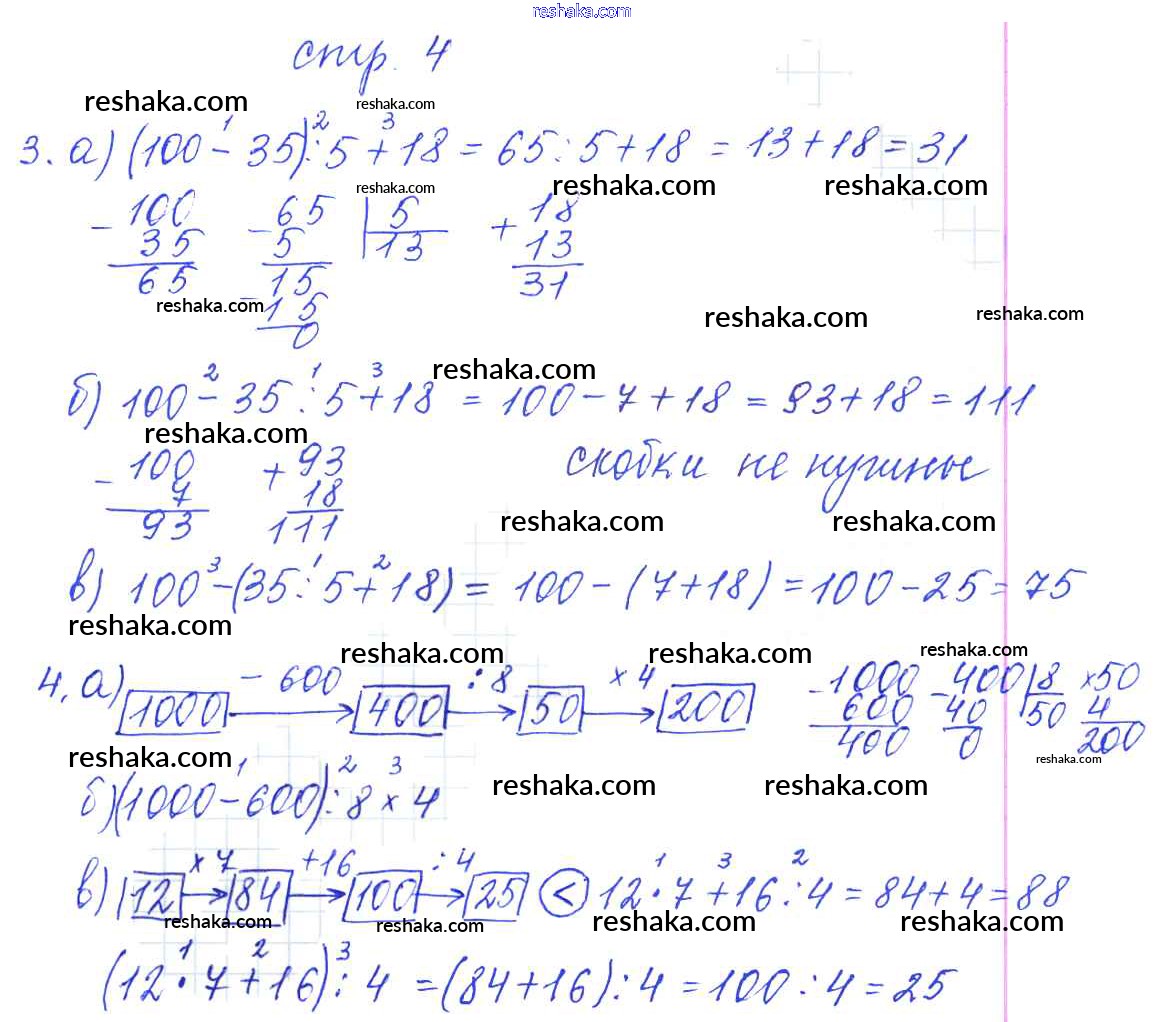 reshaka.com
стр. 4
reshaka.com reshaka.com
1 2 3
3. а) (100 - 35) : 5 + 18 = 65 : 5 + 18 = 13 + 18 = 31
reshaka.com reshaka.com reshaka.com
- 100 - 65 | 5 + 18
35 5 13 13
65 15 31
reshaka.com - 15 reshaka.com reshaka.com
0
2 1 3 reshaka.com
б) 100 - 35 : 5 + 18 = 100 - 7 + 18 = 93 + 18 = 111
reshaka.com
- 100 + 93 скобки не нужны
7 18
93 111 reshaka.com reshaka.com
3 1 2
в) 100 - (35 : 5 + 18) = 100 - (7 + 18) = 100 - 25 = 75
reshaka.com
reshaka.com reshaka.com reshaka.com
- 600 : 8 × 4
4. а) 1000 → 400 → 50 → 200 - 1000 - 400 | 8 × 50
600 40 50 4
400 0 200
reshaka.com reshaka.com
1 2 3 reshaka.com reshaka.com
б) (1000 - 600) : 8 × 4
× 7 +16 : 4 1 3 2
в) 12 → 84 → 100 → 25 < 12 · 7 + 16 : 4 = 84 + 4 = 88
reshaka.com reshaka.com reshaka.com reshaka.com
1 2 3
(12 · 7 + 16) : 4 = (84 + 16) : 4 = 100 : 4 = 25